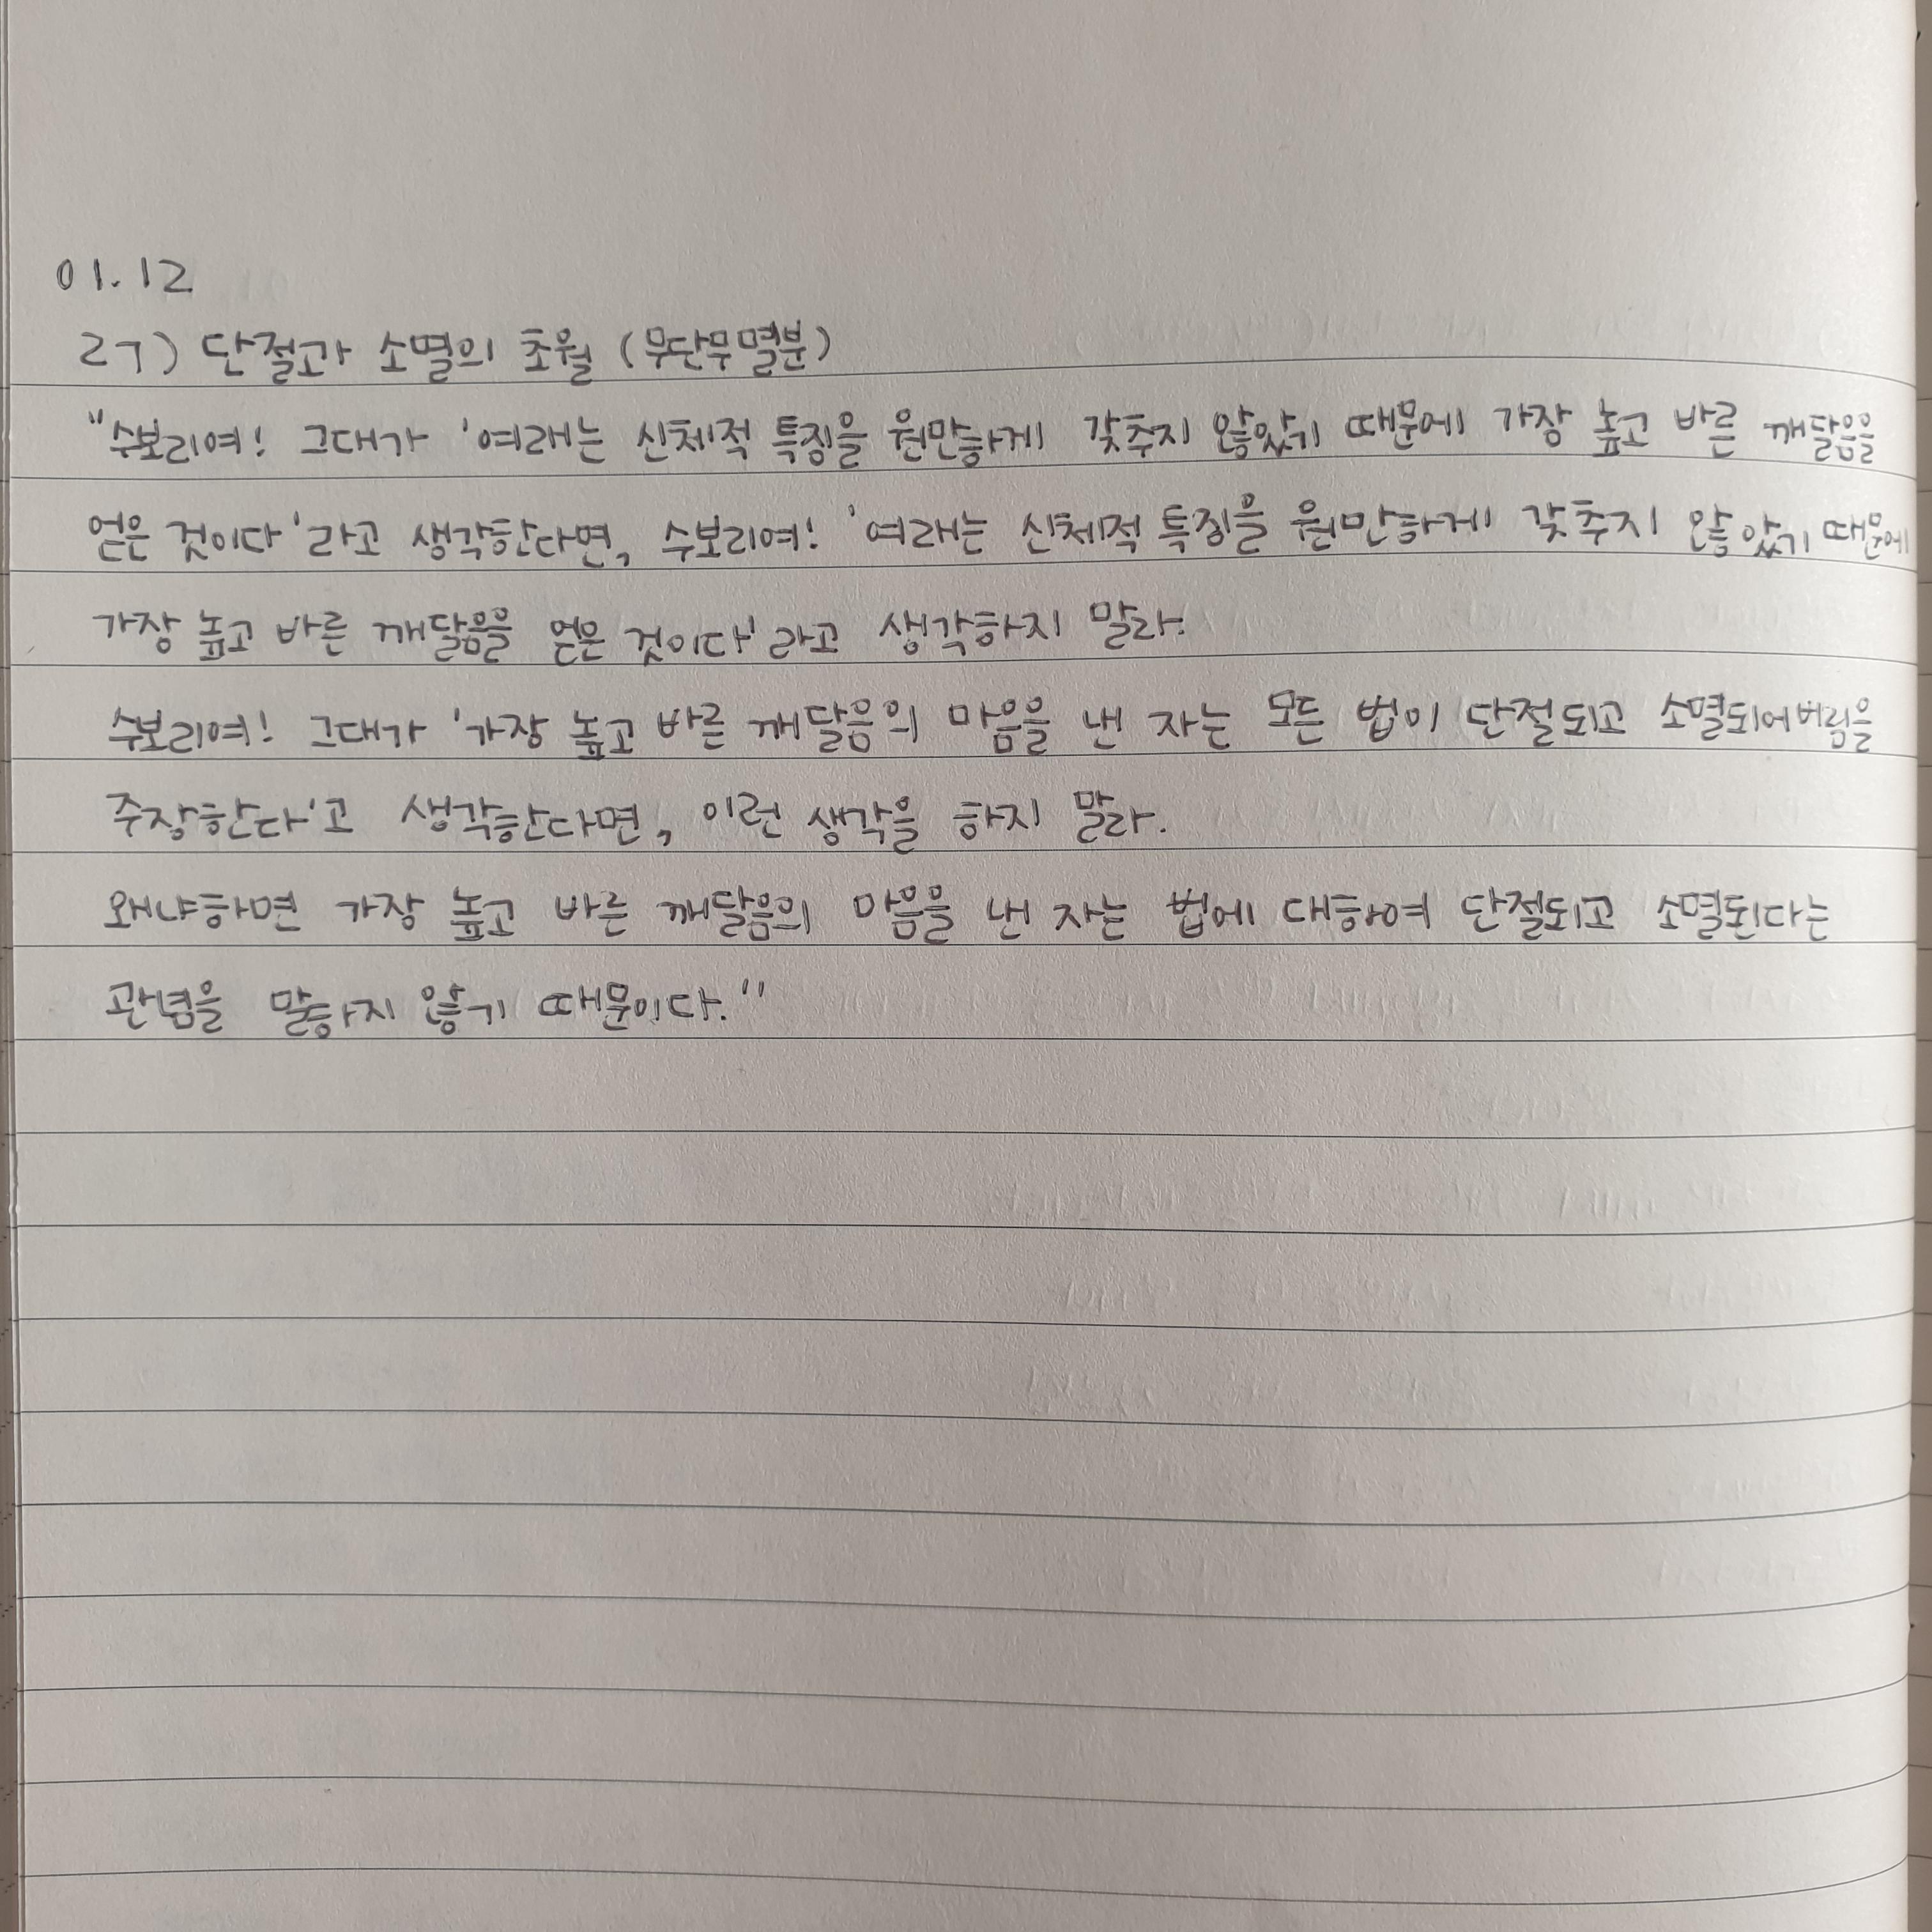 01.12
27) 단절과 소멸의 초월 (무단무멸분)
"수보리여! 그대가 '여래는 신체적 특징을 원만하게 갖추지 않았기 때문에 가장 높고 바른 깨달음을
얻은 것이다'라고 생각한다면, 수보리여! '여래는 신체적 특징을 원만하게 갖추지 않았기 때문에
가장 높고 바른 깨달음을 얻은 것이다'라고 생각하지 말라.
수보리여! 그대가 '가장 높고 바른 깨달음의 마음을 낸 자는 모든 법이 단절되고 소멸되어버림을
주장한다'고 생각한다면, 이런 생각을 하지 말라.
왜냐하면 가장 높고 바른 깨달음의 마음을 낸 자는 법에 대하여 단절되고 소멸된다는
관념을 말하지 않기 때문이다."